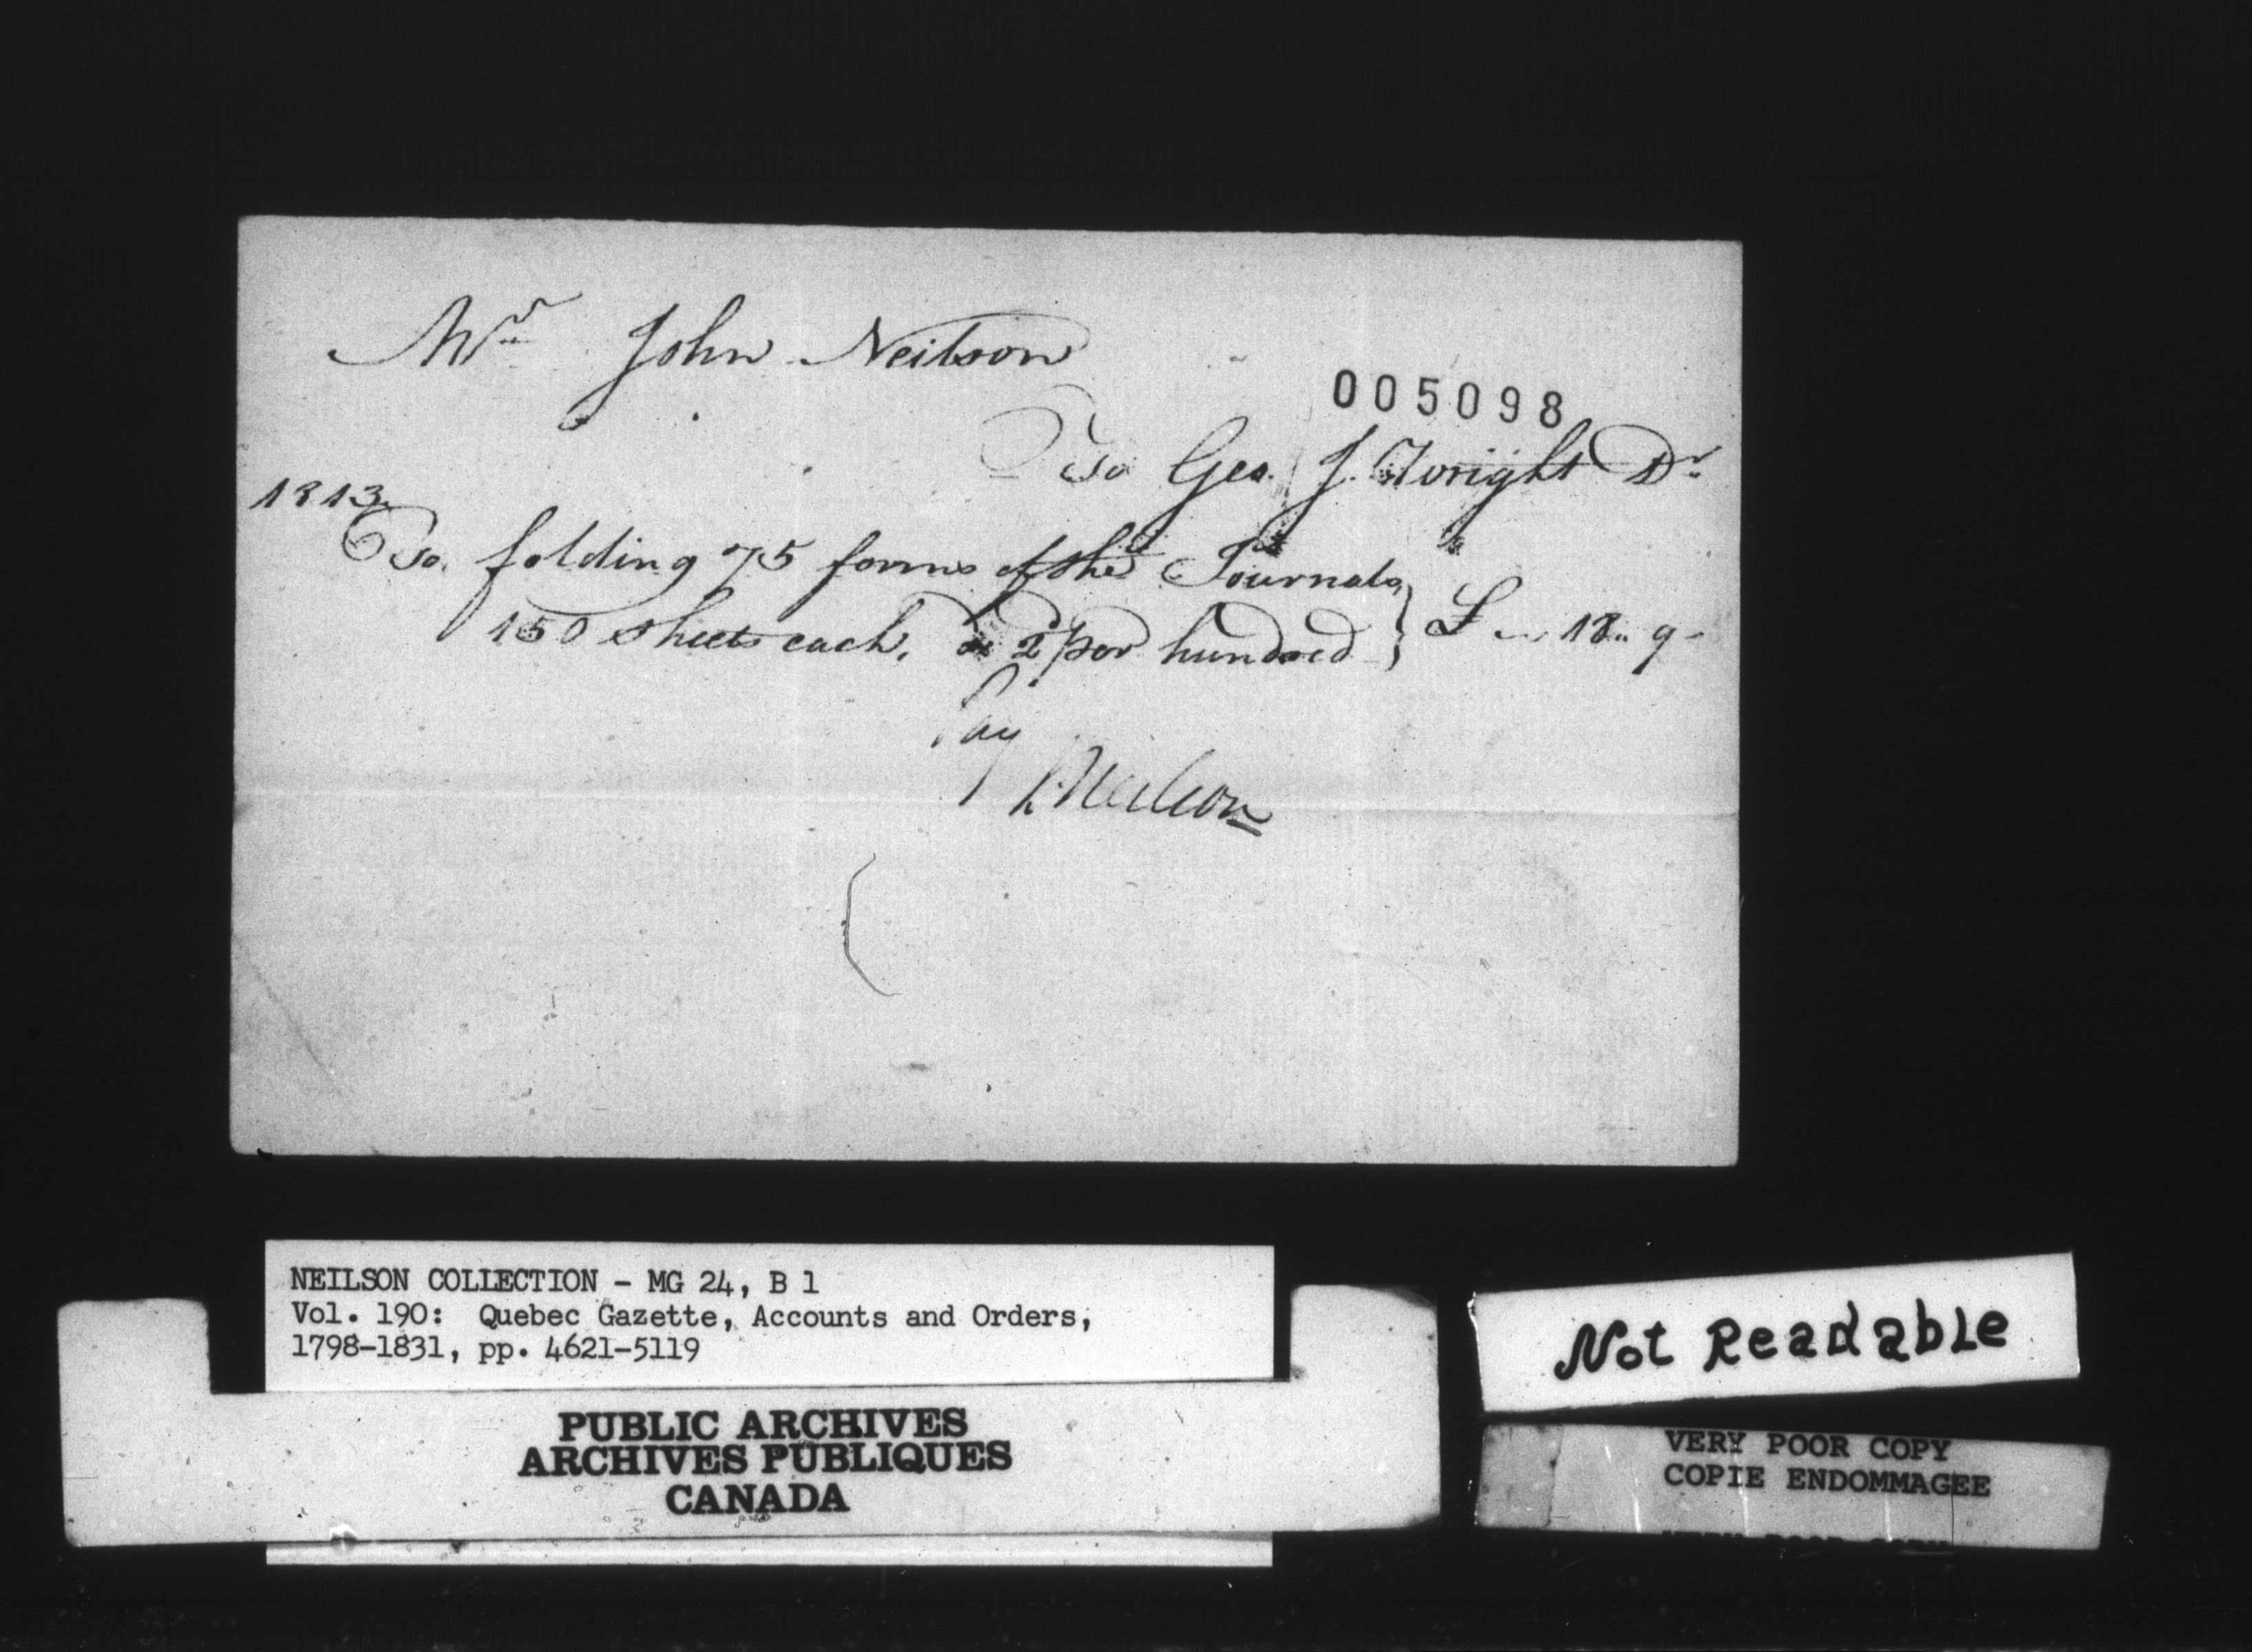 Mr. John Neilson
005098
To Geo. J. Wright Dr.
1813
To folding 75 forms of the Journals,
150 sheets each, a 2d per hundred } £ " 18 " 9
Pay
Neilson
NEILSON COLLECTION - MG 24, B 1
Vol. 190: Quebec Gazette, Accounts and Orders,
1798-1831, pp. 4621-5119
PUBLIC ARCHIVES
ARCHIVES PUBLIQUES
CANADA
Not Readable
VERY POOR COPY
COPIE ENDOMMAGEE